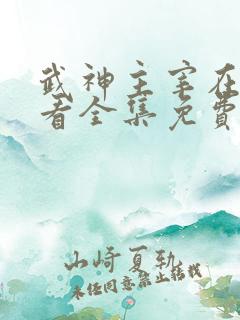 武神主宰在
看全集免費
山崎夏勒
未经同意禁止转载